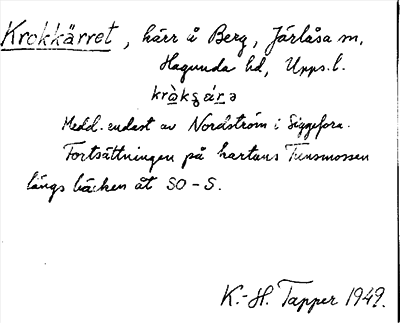 Krokkärret, kärr å Berg, Järlåsa sn,
Hagunda hd, Upps. l.
kràkʂárə
Medd. endast av Nordström i Siggefora.
Fortsättningen på kartans Tunsmossen
längs bäcken åt SO - S.
K.-H. Tapper 1949.